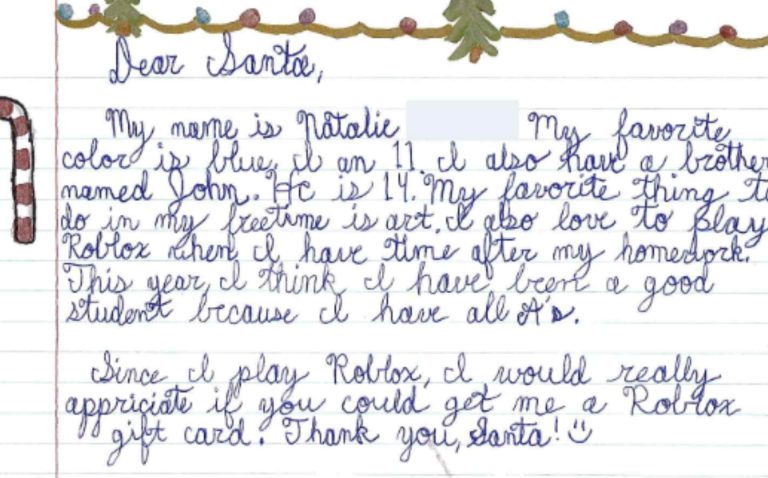 Dear Santa,
My name is Natalie My favorite
color is blue. I an 11. I also have a brother
named John. He is 14. My favorite thing to
do in my freetime is art. I also love to play
Roblox when I have time after my homework.
This year, I think I have been a good
student because I have all A's.
Since I play Roblox, I would really
appriciate if you could get me a Roblox
gift card. Thank you, Santa! :)